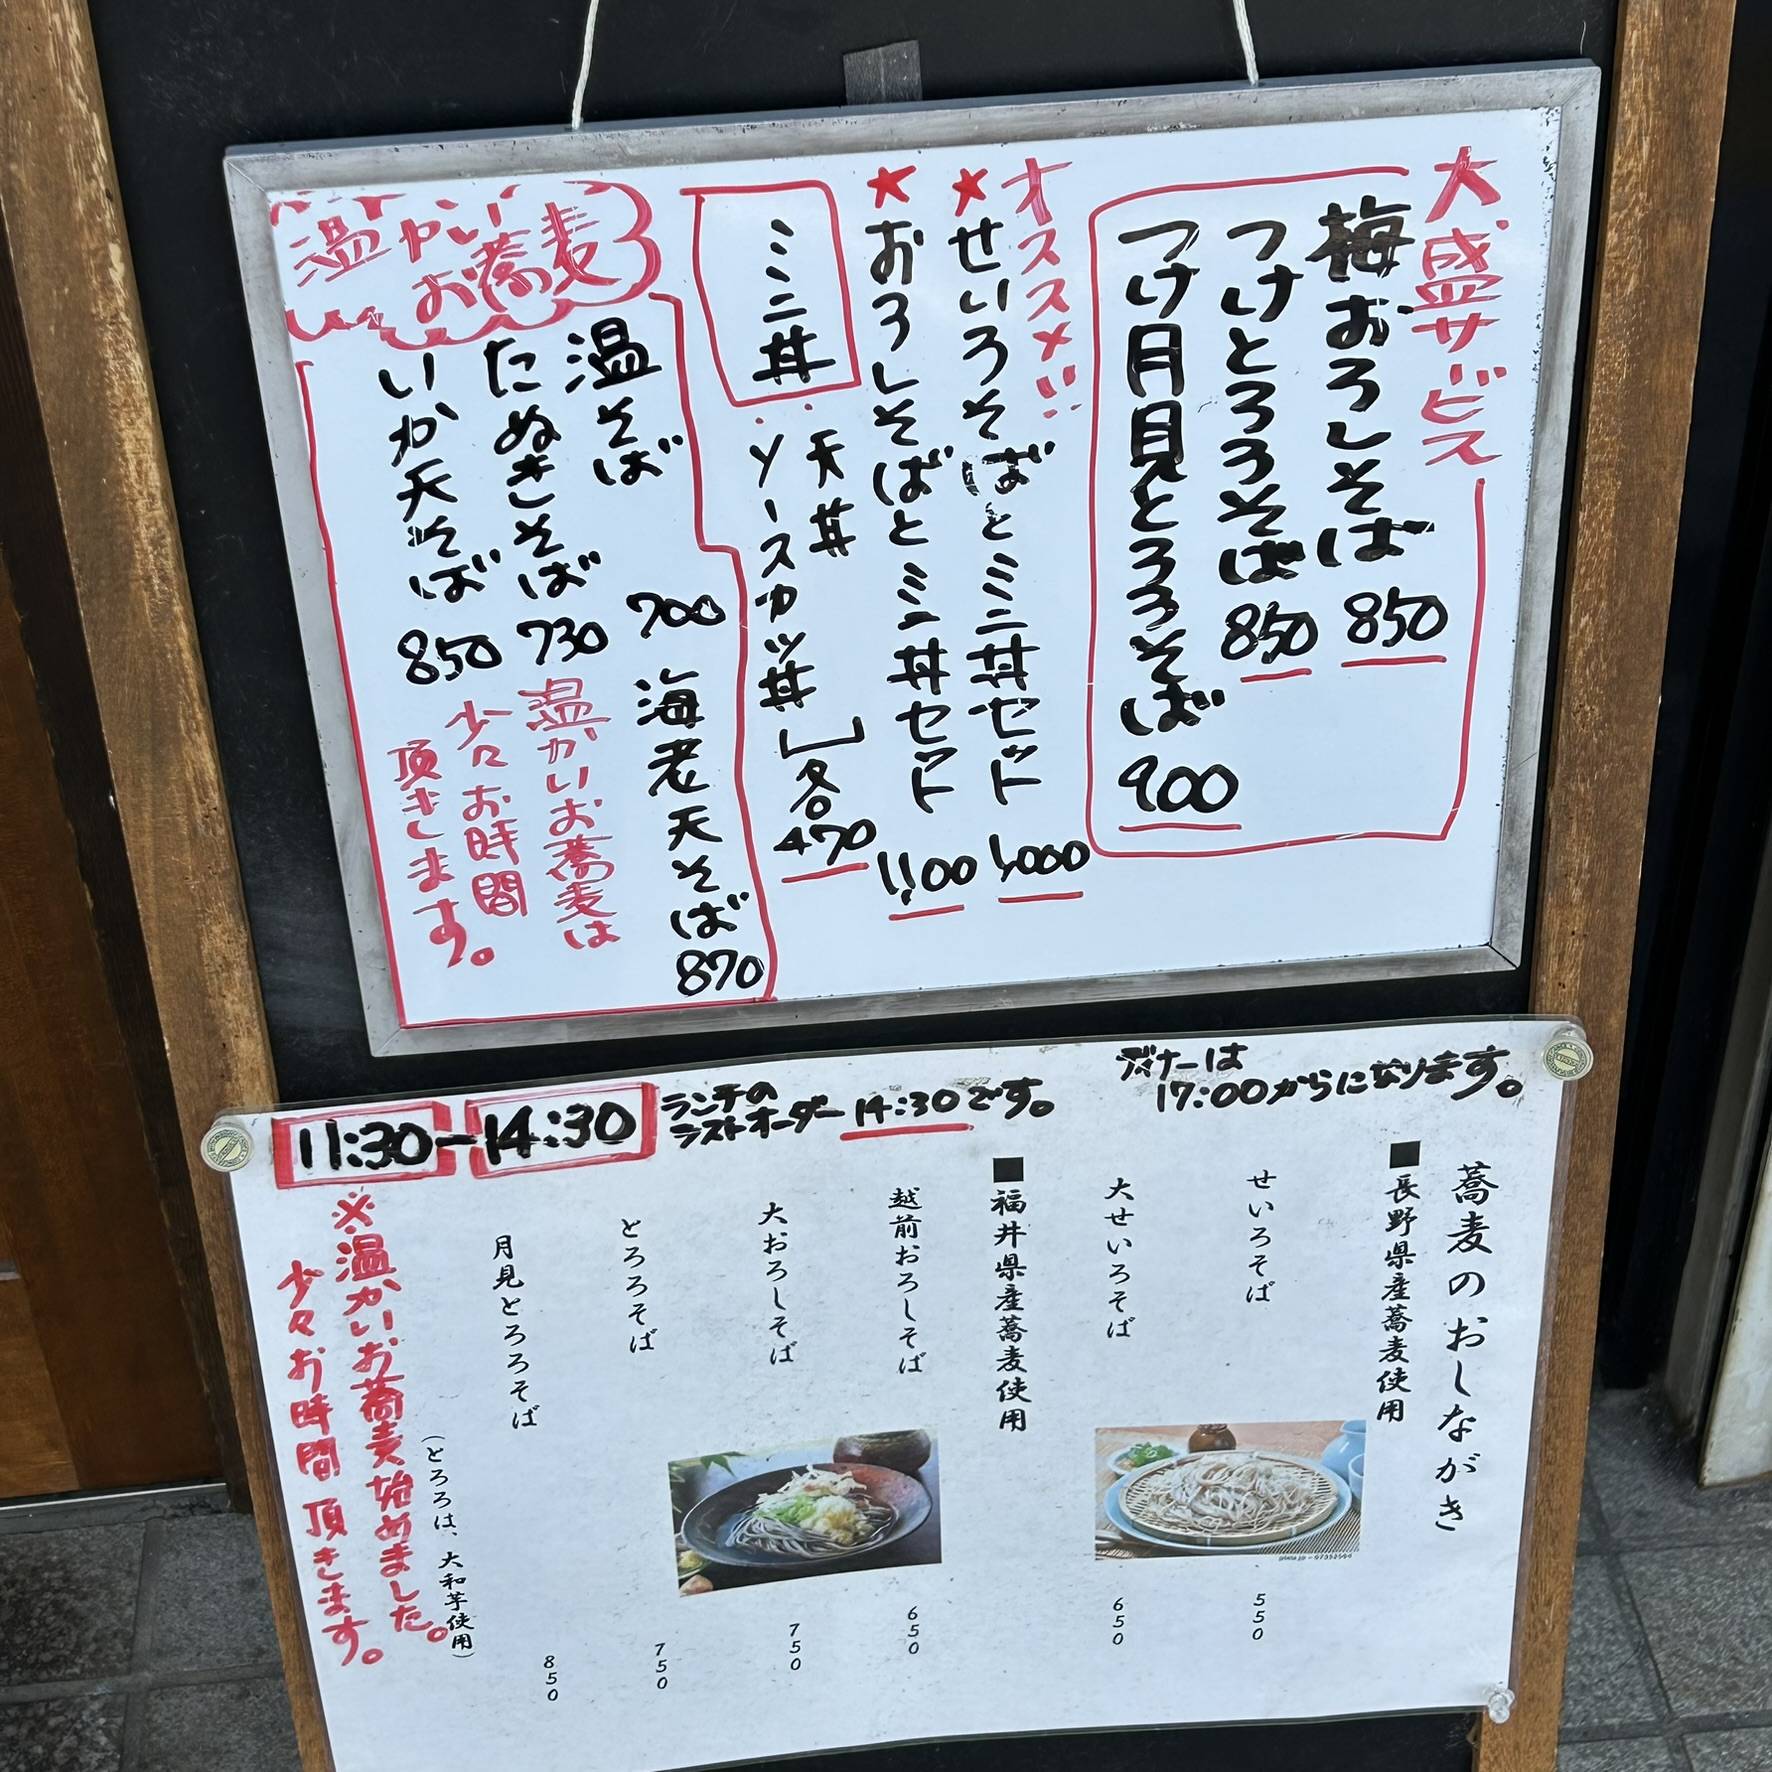 大盛サービス
梅おろしそば 850
つけとろろそば 850
つけ月見とろろそば 900
オススメ!!
★せいろそばとミニ丼セット 1,000
★おろしそばとミニ丼セット 1,100
ミニ丼:天丼
:ソースカツ丼 各470
温かいお蕎麦
温そば 700
たぬきそば 730
いか天そば 850
海老天そば 870
温かいお蕎麦は
少々お時間
頂きます。
11:30-14:30
ランチの
ラストオーダー14:30です。
ディナーは
17:00からになります。
蕎麦のおしながき
■長野県産蕎麦使用
せいろそば 550
大せいろそば 650
■福井県産蕎麦使用
越前おろしそば 650
大おろしそば 750
とろろそば 750
月見とろろそば 850
(とろろは、大和芋使用)
※温かいお蕎麦始めました。
少々お時間頂きます。